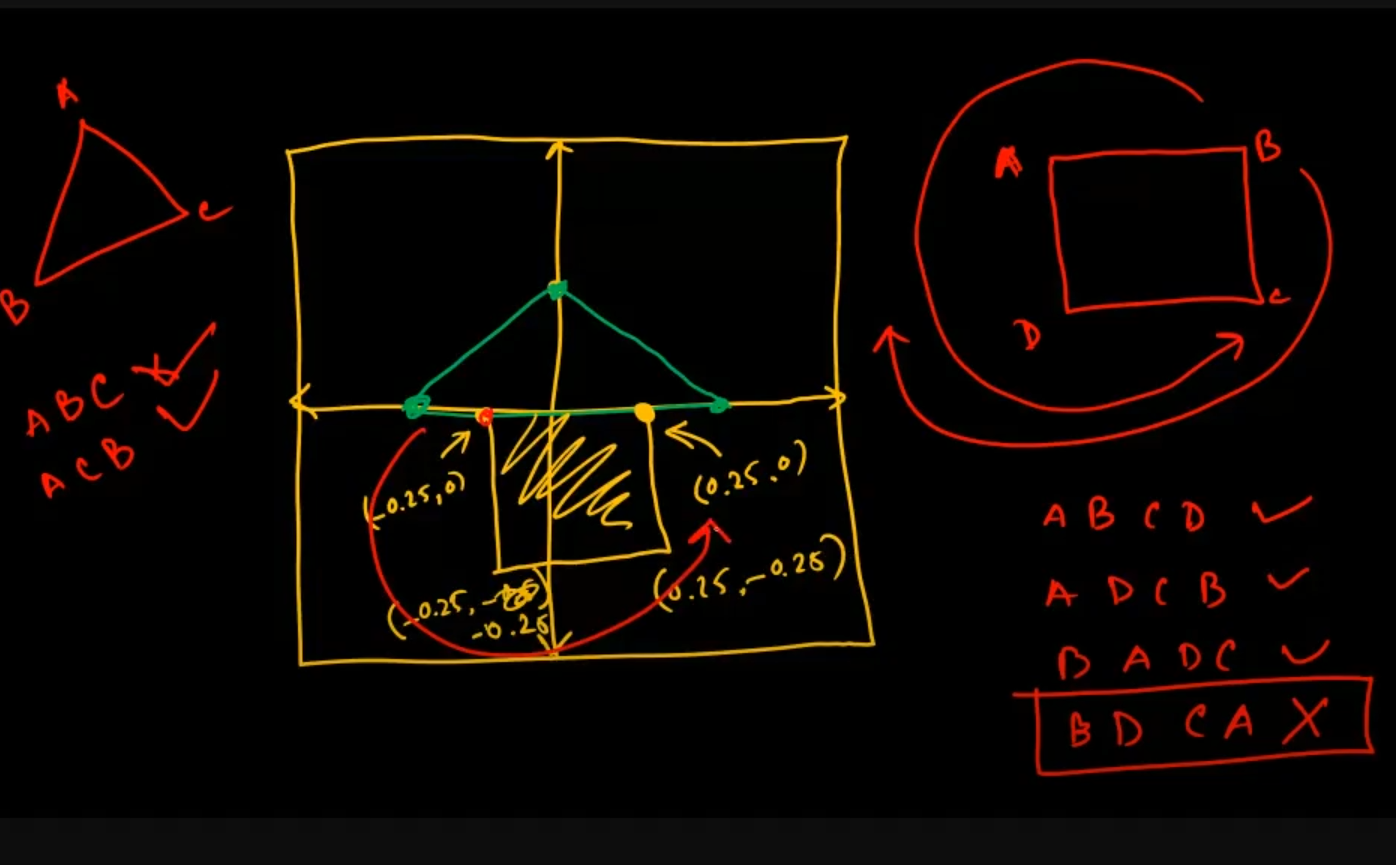 A
C
B
A B C ✓
A C B ✓
(-0.25,0)
(0.25,0)
(-0.25, -
-0.25
(0.25,-0.25)
A
B
C
D
A B C D ✓
A D C B ✓
B A D C ✓
B D C A X